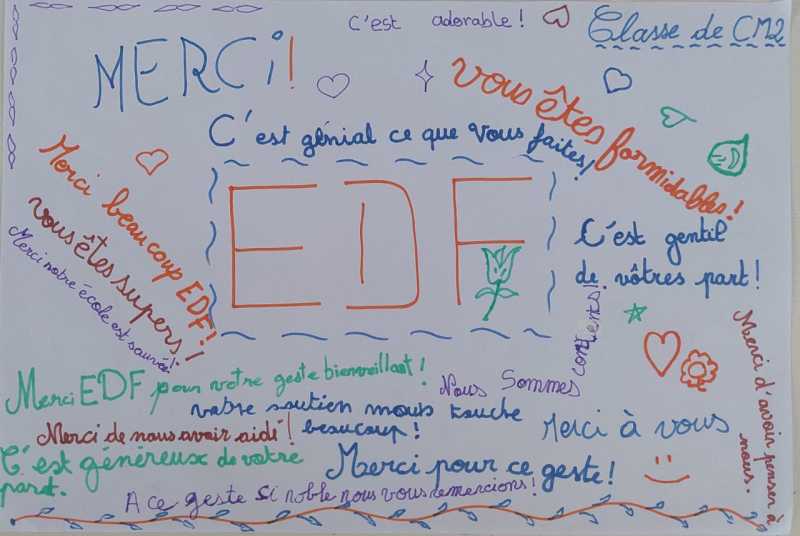 C'est adorable !
Classe de CM2
MERCi !
vous êtes formidables !
C'est génial ce que vous faites !
EDF
Merci beaucoup EDF !
vous êtes supers !
Merci notre école est sauvée !
C'est gentil
de vôtres part !
Merci EDF pour votre geste bienveillant !
Nous Sommes
contents !
votre soutien nous touche
beaucoup !
Merci de nous avoir aidé !
Merci à vous
Merci d'avoir penser à
nous.
C'est généreux de votre
part.
Merci pour ce geste !
A ce geste si noble nous vous remercions !